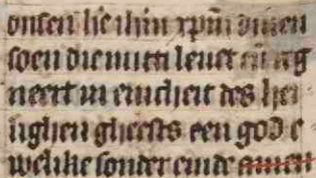 onsen he ihm xpm dinen
soen die mitti leuet en reg
neert in eincheit des hei
lighen gheests een god e
welike sonder einde amen